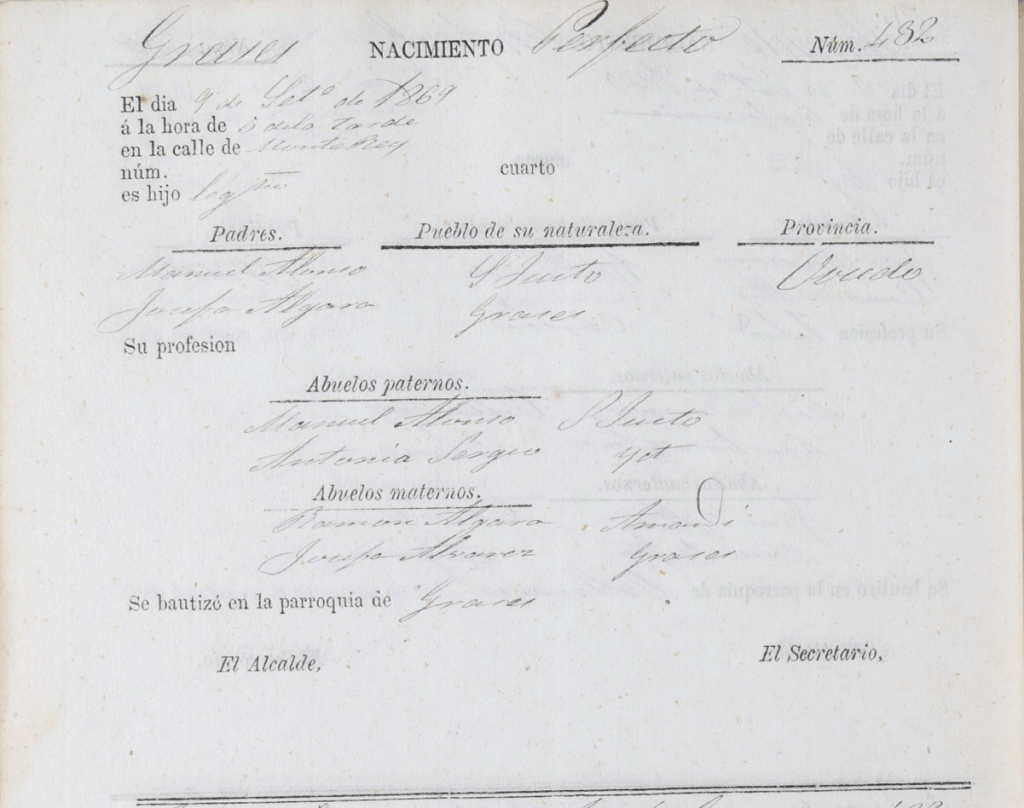 Grases NACIMIENTO Perfecto Núm. 482
El dia 9 de Set.e de 1869
á la hora de 5 de la tarde
en la calle de Monte Rey
núm. cuarto
es hijo legtmo
Padres. Pueblo de su naturaleza. Provincia.
Manuel Alonso S Justo Oviedo
Josefa Algara Grases
Su profesion
Abuelos paternos.
Manuel Alonso S Justo
Antonia
Abuelos maternos.
Ramon Algara Amandi
Josefa Alvarez Grases
Se bautizó en la parroquia de Grases
El Alcalde, El Secretario,